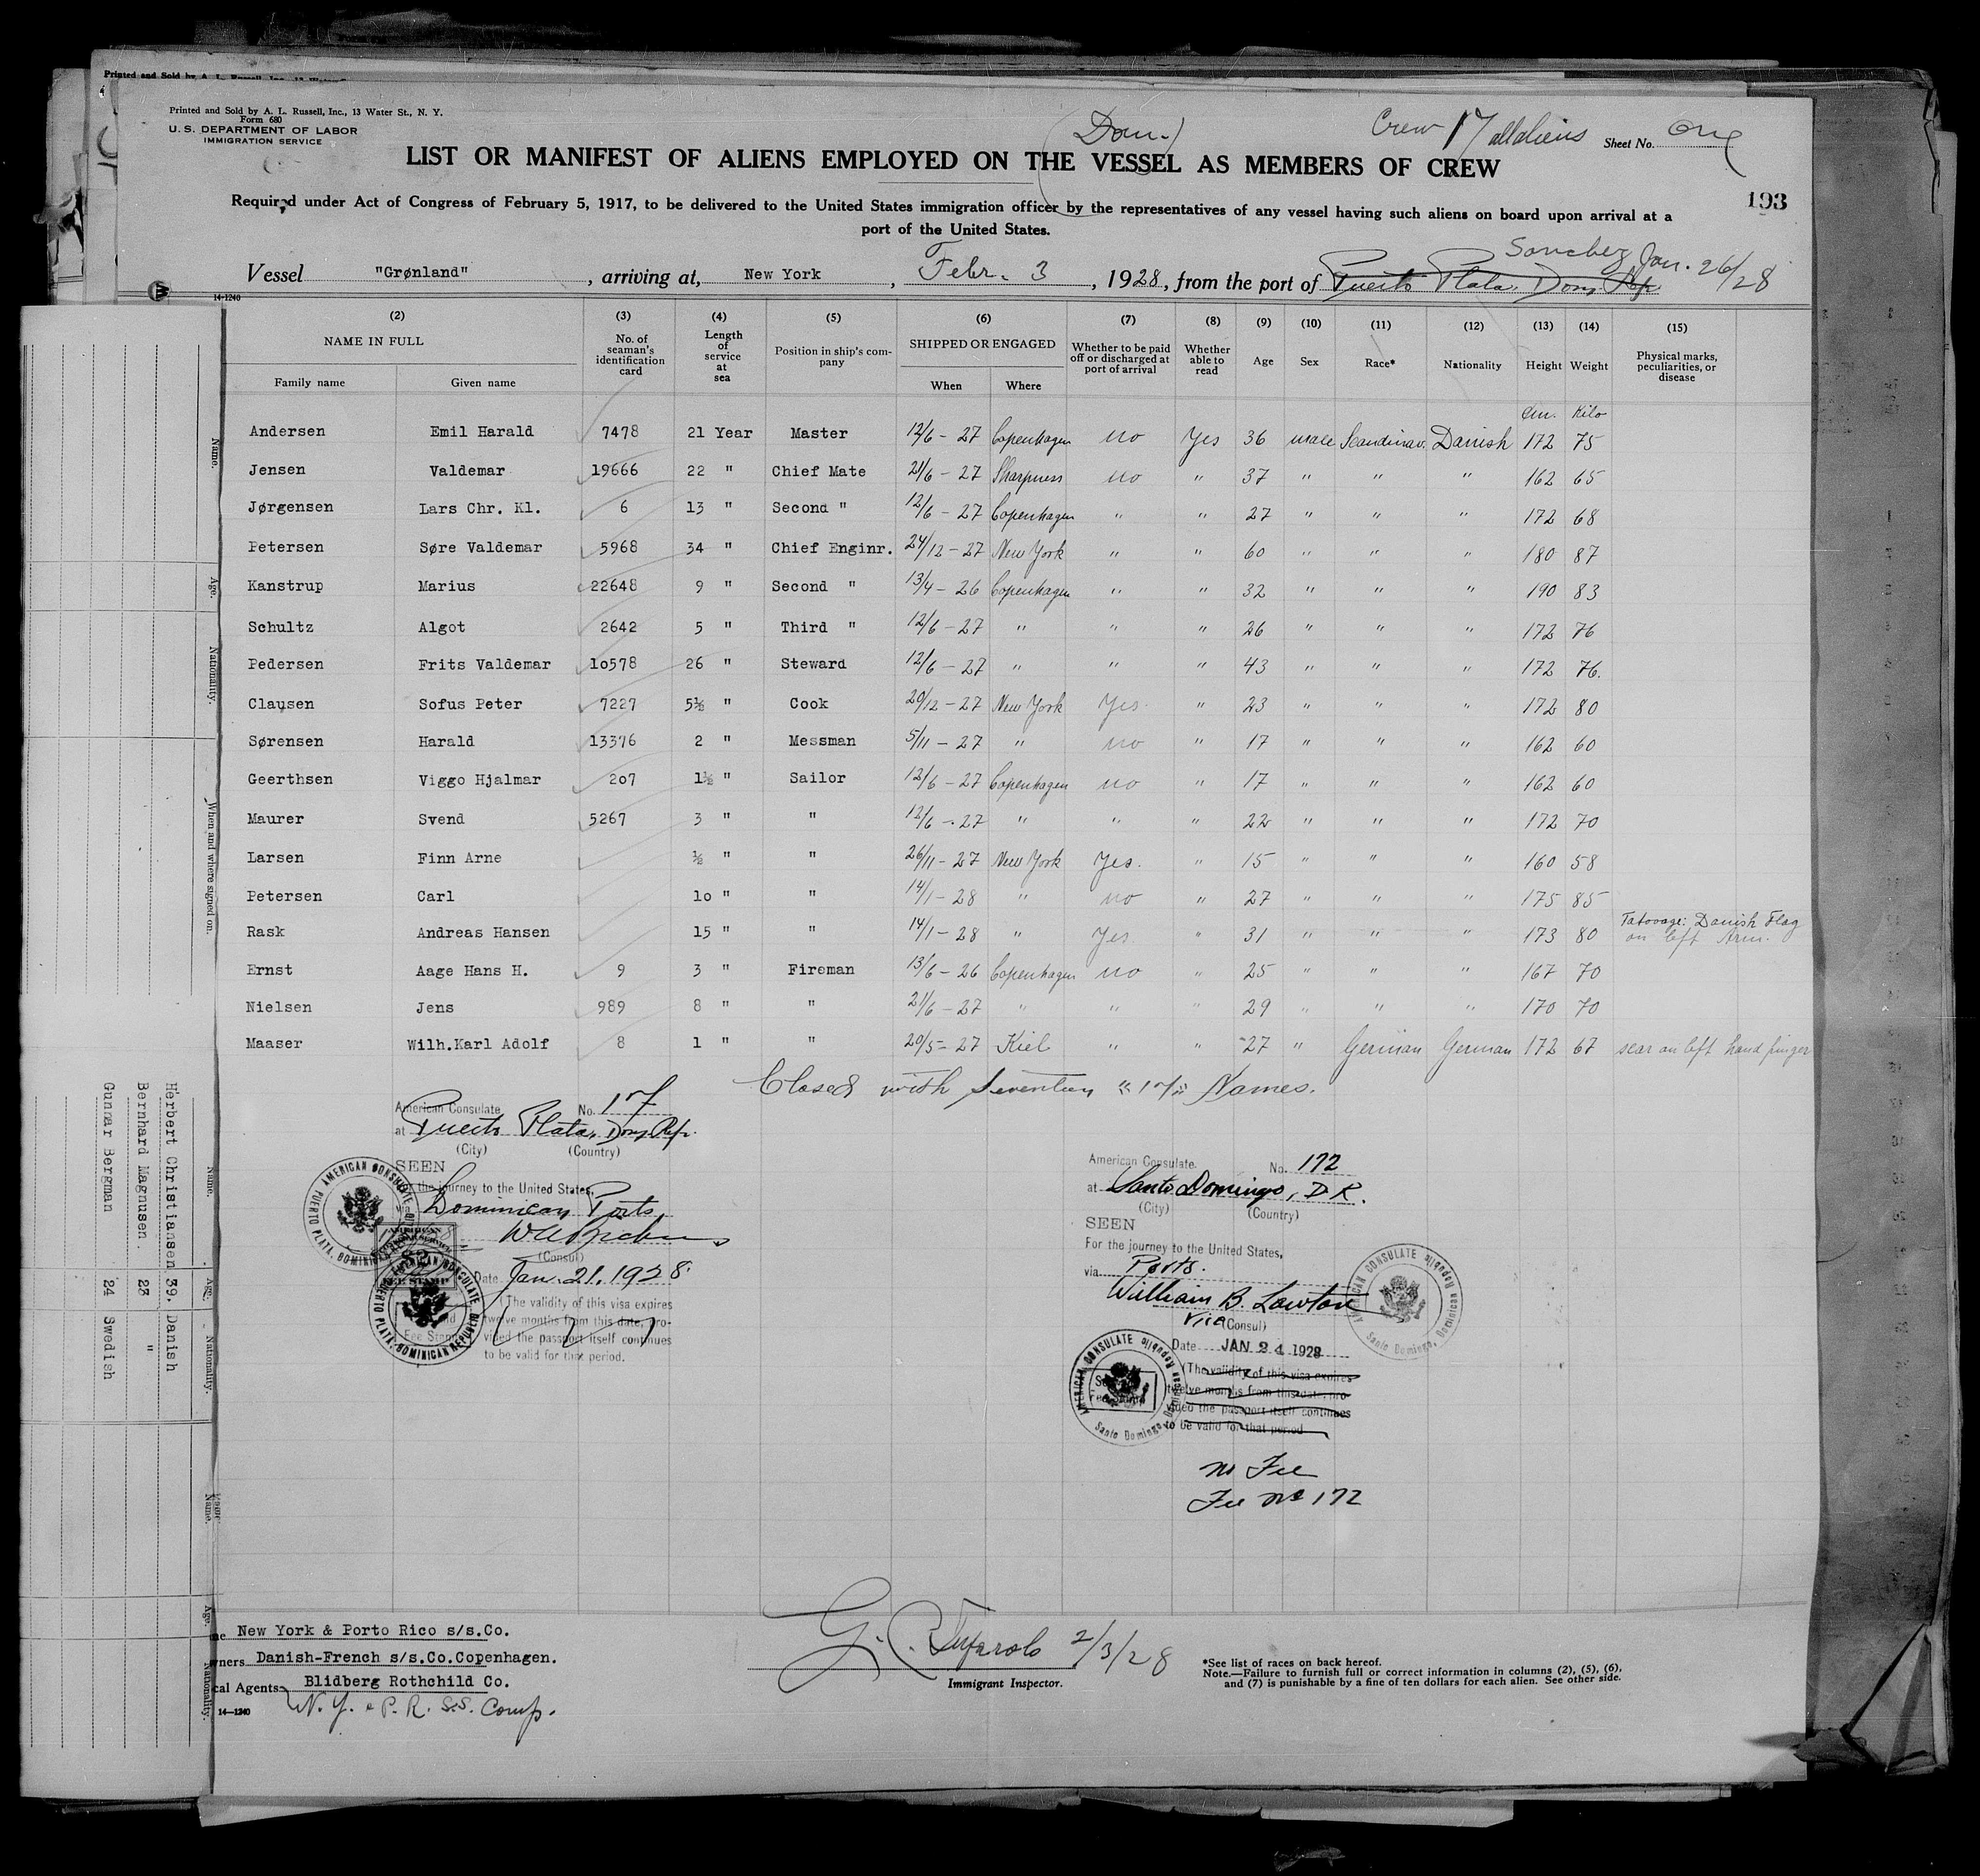 Printed and Sold by A. L. Russell, Inc., 13 Water St., N. Y.
Form 680
U. S. DEPARTMENT OF LABOR
IMMIGRATION SERVICE
(Dan.)
Crew 17 all aliens Sheet No. One
LIST OR MANIFEST OF ALIENS EMPLOYED ON THE VESSEL AS MEMBERS OF CREW
193
Required under Act of Congress of February 5, 1917, to be delivered to the United States immigration officer by the representatives of any vessel having such aliens on board upon arrival at a
port of the United States.
Sanchez Jan. 26/28
Vessel "Grønland", arriving at, New York, Febr. 3, 1928, from the port of Puerto Plata, Dom. Rep.
14-1240
(2) (3) (4) (5) (6) (7) (8) (9) (10) (11) (12) (13) (14) (15)
NAME IN FULL No. of seaman's identification card Length of service at sea Position in ship's company SHIPPED OR ENGAGED Whether to be paid off or discharged at port of arrival Whether able to read Age Sex Race* Nationality Height Weight Physical marks, peculiarities, or disease
Family name Given name When Where
cm. Kilo
Andersen Emil Harald 7478 21 Year Master 12/6 - 27 Copenhagen no Yes 36 male Scandinav. Danish 172 75
Jensen Valdemar 19666 22 " Chief Mate 21/6 - 27 Sharpness no " 37 " " " 162 65
Jørgensen Lars Chr. Kl. 6 13 " Second " 12/6 - 27 Copenhagen " " 27 " " " 172 68
Petersen Søre Valdemar 5968 34 " Chief Enginr. 24/12 - 27 New York " " 60 " " " 180 87
Kanstrup Marius 22648 9 " Second " 13/4 - 26 Copenhagen " " 32 " " " 190 83
Schultz Algot 2642 5 " Third " 12/6 - 27 " " " 26 " " " 172 76
Pedersen Frits Valdemar 1o578 26 " Steward 12/6 - 27 " " " 43 " " " 172 76.
Clausen Sofus Peter 7227 5½ " Cook 29/12 - 27 New York Yes " 23 " " " 172 80
Sørensen Harald 13376 2 " Messman 5/11 - 27 " no " 17 " " " 162 60
Geerthsen Viggo Hjalmar 2o7 1½ " Sailor 12/6 - 27 Copenhagen no " 17 " " " 162 60
Maurer Svend 5267 3 " " 12/6 - 27 " " " 22 " " " 172 70
Larsen Finn Arne ½ " " 26/11 - 27 New York Yes. " 15 " " " 160 58
Petersen Carl 1o " " 14/1 - 28 " no " 27 " " " 175 85
Rask Andreas Hansen 15 " " 14/1 - 28 " Yes " 31 " " " 173 80 Tatovage: Danish Flag on left Arm.
Ernst Aage Hans H. 9 3 " Fireman 13/6 - 26 Copenhagen no " 25 " " " 167 70
Nielsen Jens 989 8 " " 21/6 - 27 " " " 29 " " " 170 70
Maaser Wilh.Karl Adolf 8 1 " " 20/5 - 27 Kiel " " 27 " German German 172 67 scar on left hand finger
Closed with Seventeen "17" Names.
American Consulate No. 17
at Puerto Plata, Dom. Rep.
(City) (Country)
SEEN
For the journey to the United States,
via Dominican Ports
(Consul)
Date Jan. 21. 1928.
(The validity of this visa expires
twelve months from this date, pro-
vided the passport itself continues
to be valid for that period.
AMERICAN CONSULATE PUERTO PLATA, DOMINICAN REPUBLIC
American Consulate No. 172
at Santo Domingo, D.R.
(City) (Country)
SEEN
For the journey to the United States,
via Ports.
William B. Lawton
Vice (Consul)
Date JAN 24 1928
(The validity of this visa expires
twelve months from this date, pro-
vided the passport itself continues
to be valid for that period
AMERICAN CONSULATE Santo Domingo, Dominican Republic
No Fee
Fee No 172
New York & Porto Rico s/s.Co.
wners Danish-French s/s.Co.Copenhagen.
cal Agents Blidberg Rothchild Co.
N. Y. & P. R. S.S. Comp.
14—1240
2/3/28
Immigrant Inspector.
*See list of races on back hereof.
Note.—Failure to furnish full or correct information in columns (2), (5), (6),
and (7) is punishable by a fine of ten dollars for each alien. See other side.
Name. Age. Nationality. When and where signed on.
Herbert Christianson 39. Danish
Bernhard Magnuson. 23 "
Gunnar Bergman 24 Swedish
Name. Age. Nationality.
Name. Age. Nationality.